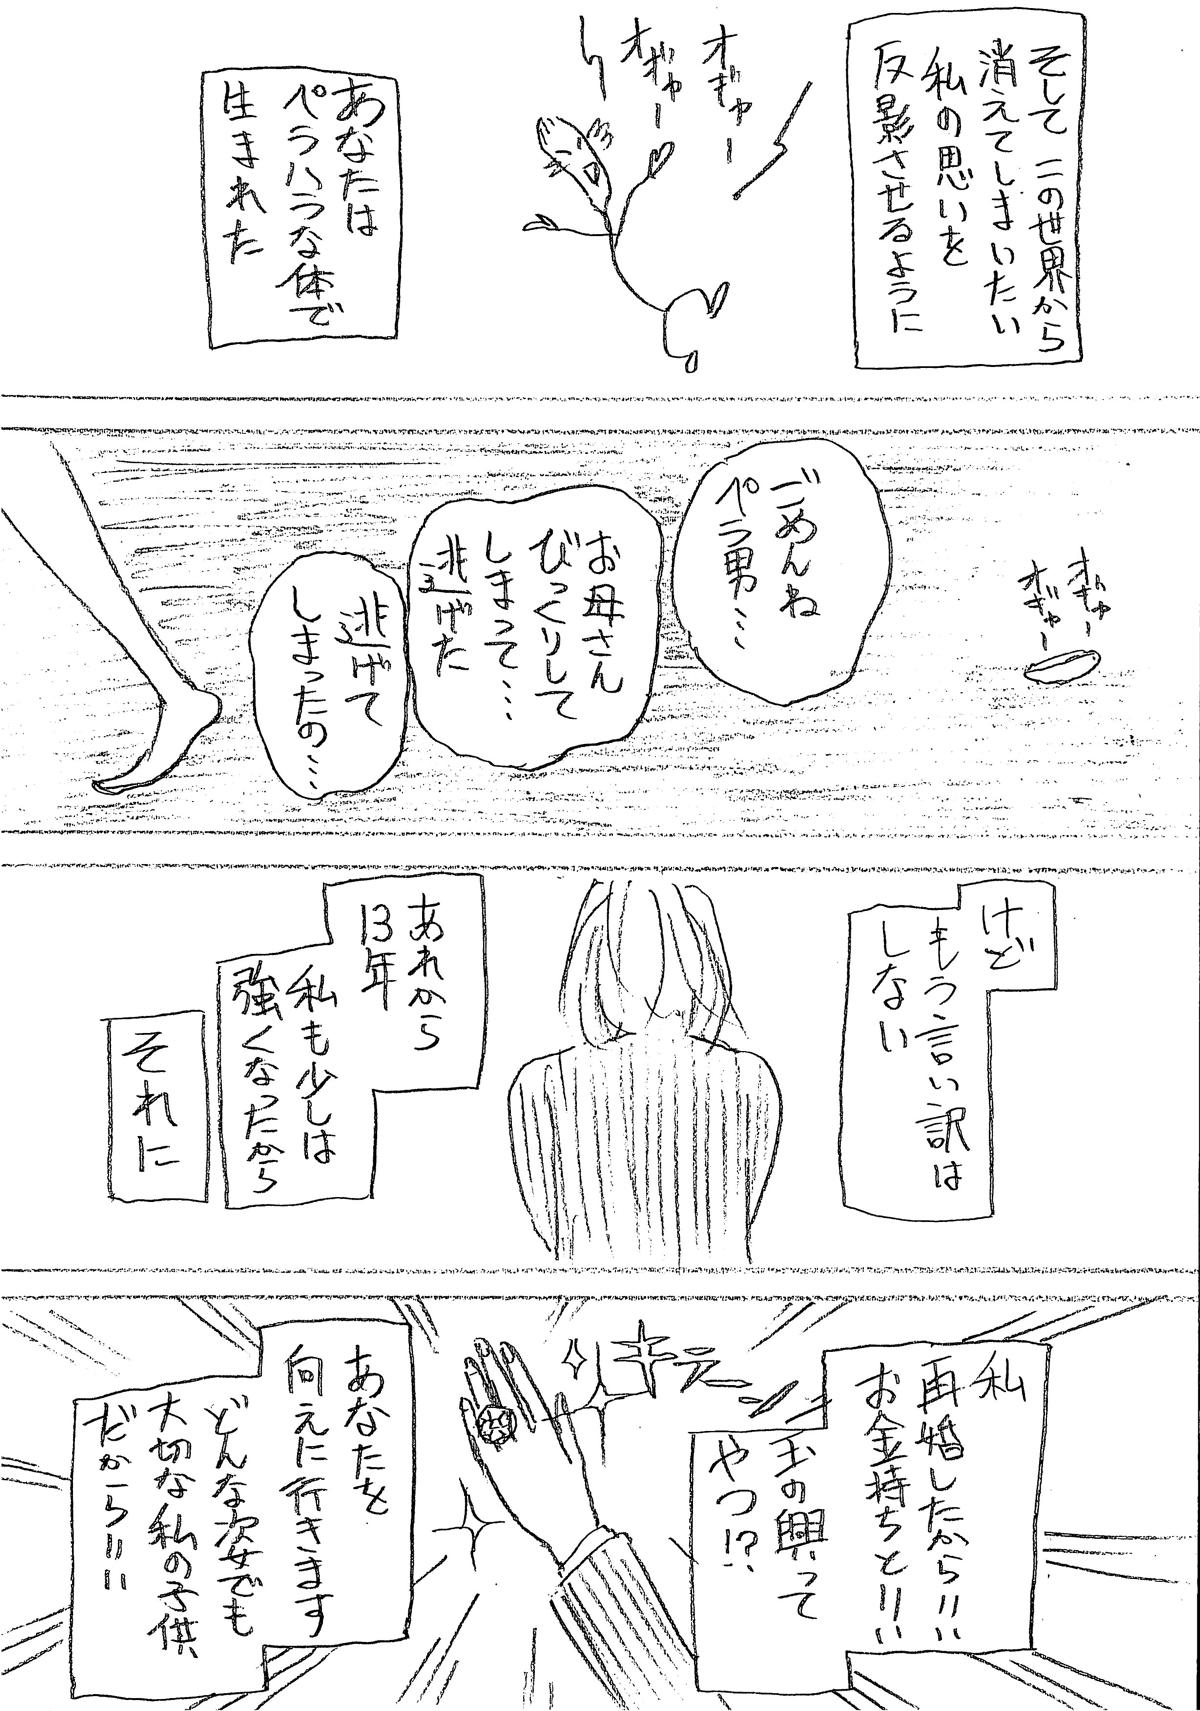 そして この世界から
消えてしまいたい
私の思いを
反影させるように
オギャー
オギャー
あなたは
ペラハラな体で
生まれた
オギャー
オギャー
ごめんね
ペラ男…
お母さん
びっくりして
しまって…
逃げた
逃げて
しまったの…
けど
もう言い訳は
しない
あれから
13年
私も少しは
強くなったから
それに
私
再婚したから!!
お金持ちと!!
玉の輿って
やつ!?
キラーン
あなたを
向えに行きます
どんな姿でも
大切な私の子供
だから!!